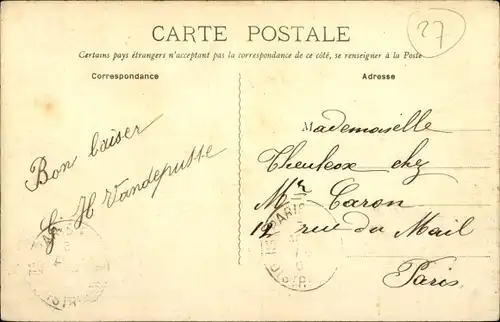 CARTE POSTALE
27
Certains pays étrangers n'acceptant pas la correspondance de ce côté, se renseigner à la Poste
Correspondance
Adresse
Bon baiser
G H Vandeputte
Mademoiselle
chez
Mr Caron
12 rue du Mail
Paris
PARIS
DISTR